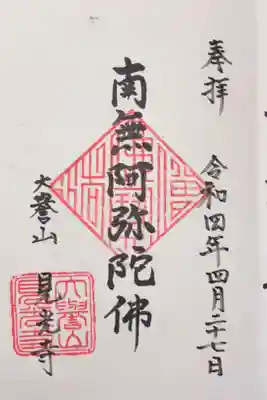 奉拝
令和四年四月二十七日
南無阿弥陀佛
大誉山
見光寺